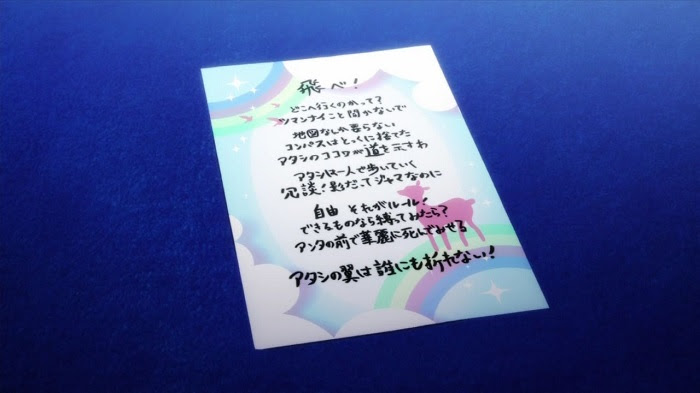 飛べ!
どこへ行くのかって?
ツマンナイこと聞かないで
地図なんか要らない
コンパスはとっくに捨てた
アタシのココロが道を示すわ
アタシは一人で歩いていく
冗談!影だってジャマなのに
自由 それがルール!
できるものなら縛ってみたら?
アンタの前で華麗に死んでみせる
アタシの翼は誰にも折れない!